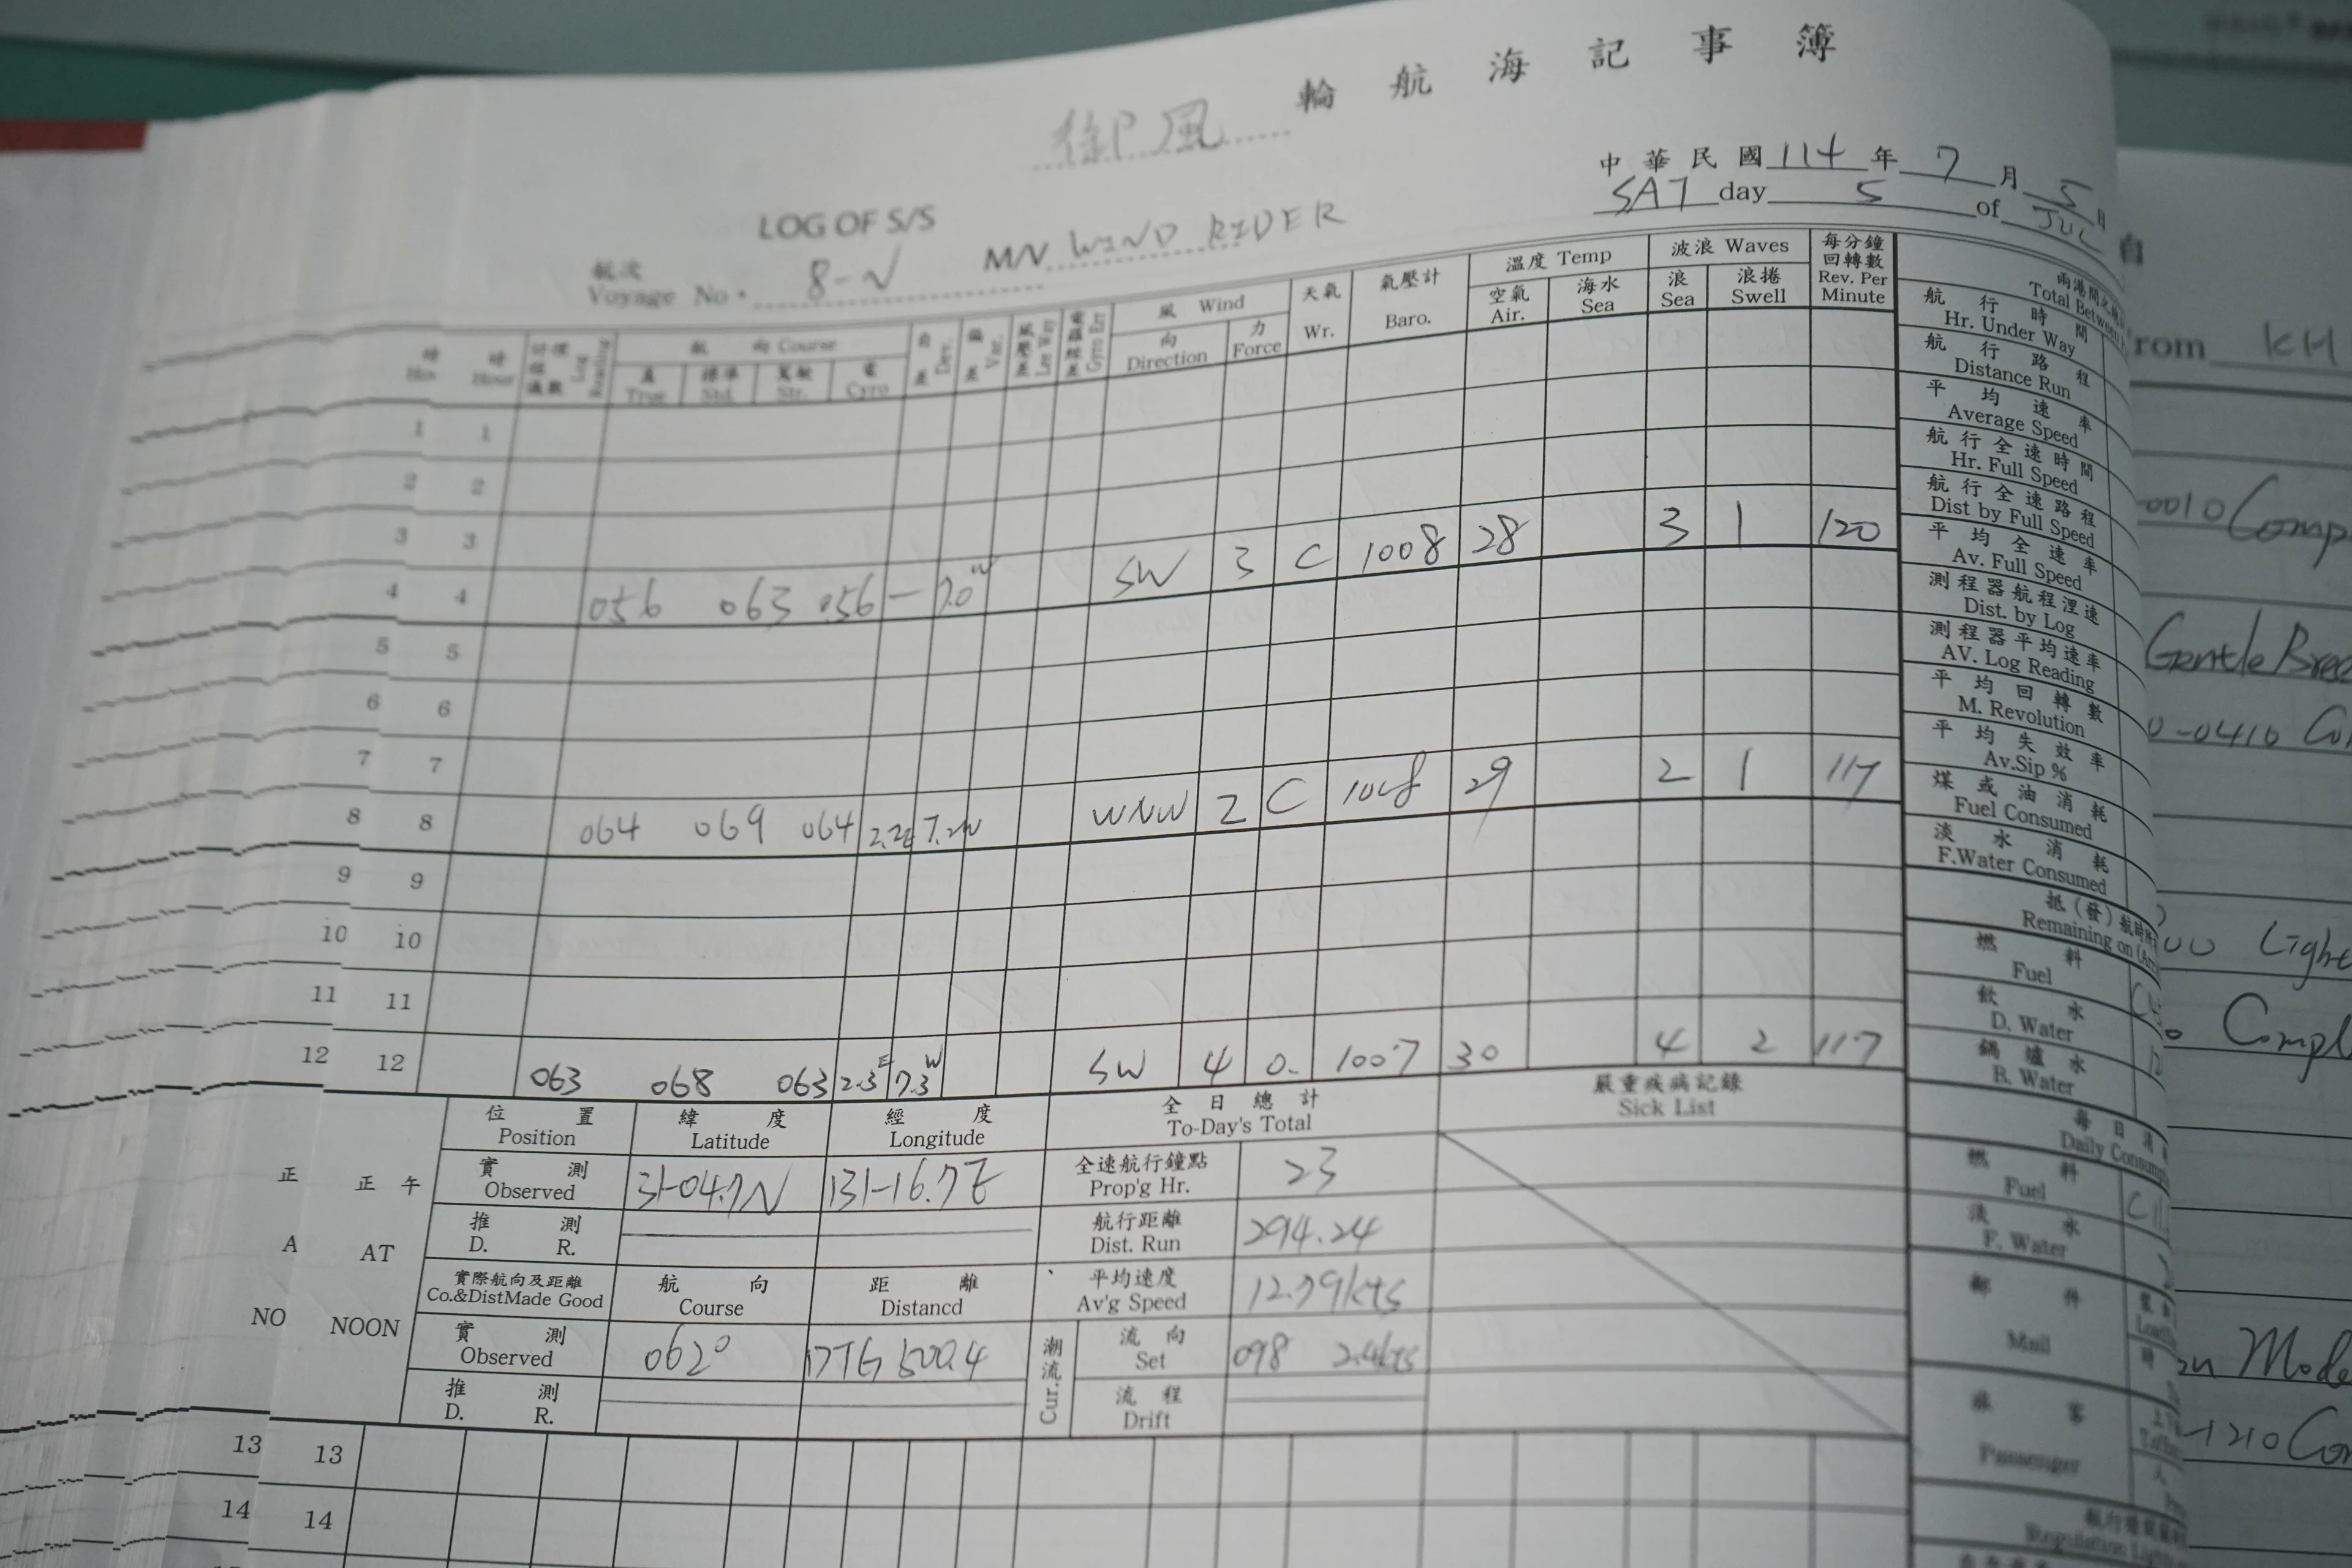 御風 輪航海記事簿
中華民國 114 年 7 月 5 日
SAT day 5 of JUL
LOG OF S/S
航次
Voyage No. 8-N M/V WIND RIDER
航 向 Course
風 Wind
天氣 Wr.
氣壓計 Baro.
溫度 Temp
波浪 Waves
每分鐘回轉數 Rev. Per Minute
時 Hour
真 True
標準 Std.
駕駛 Str.
電 Gyro
自差 Dev.
偏差 Var.
風壓差 Lee Way
電羅經差 Gyro Err
向 Direction
力 Force
空氣 Air.
海水 Sea
浪 Sea
浪捲 Swell
1 1
2 2
3 3
4 4 056 063 056 — 7.0W SW 3 C 1008 28 3 1 120
5 5
6 6
7 7
8 8 064 069 064 2.2E 7.2W WNW 2 C 1008 29 2 1 117
9 9
10 10
11 11
12 12 063 068 063 2.3E 7.3W SW 4 0. 1007 30 4 2 117
位置 Position
緯度 Latitude
經度 Longitude
全日總計 To-Day's Total
嚴重疾病記錄 Sick List
正 正午
A AT
NO NOON
實測 Observed 31-04.7N 131-16.7E
全速航行鐘點 Prop'g Hr. 23
推測 D. R.
航行距離 Dist. Run 294.24
實際航向及距離 Co.&DistMade Good
航向 Course
距離 Distancd
平均速度 Av'g Speed 12.79kts
實測 Observed 062° DTG 500.4
潮流 Cur.
流向 Set 098 2.4kts
推測 D. R.
流程 Drift
13 13
14 14
兩港間之
Total Between
航行時間
Hr. Under Way
航行路程
Distance Run
平均速率
Average Speed
航行全速時間
Hr. Full Speed
航行全速路程
Dist by Full Speed
平均全速率
Av. Full Speed
測程器航程浬速
Dist. by Log
測程器平均速率
AV. Log Reading
平均回轉數
M. Revolution
平均失效率
Av.Sip %
煤或油消耗
Fuel Consumed
淡水消耗
F.Water Consumed
抵(發)航時所
Remaining on (Arr
燃料
Fuel
飲水
D. Water
鍋爐水
B. Water
每日消
Daily Consump
燃料
Fuel
淡水
F. Water
郵件
Mail
旅客
Passenger
Regulation Lig
自
rom KH
0010 Comp
Gentle Bree
0-0410 Co
00 Light
Compl
Mode
-1210 Co